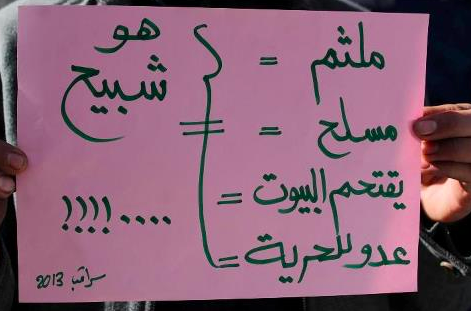 ملثم =
مسلح =
يقتحم البيوت =
عدو للحرية =
=
هو
شبيح
....!!!!
سراقب 2013